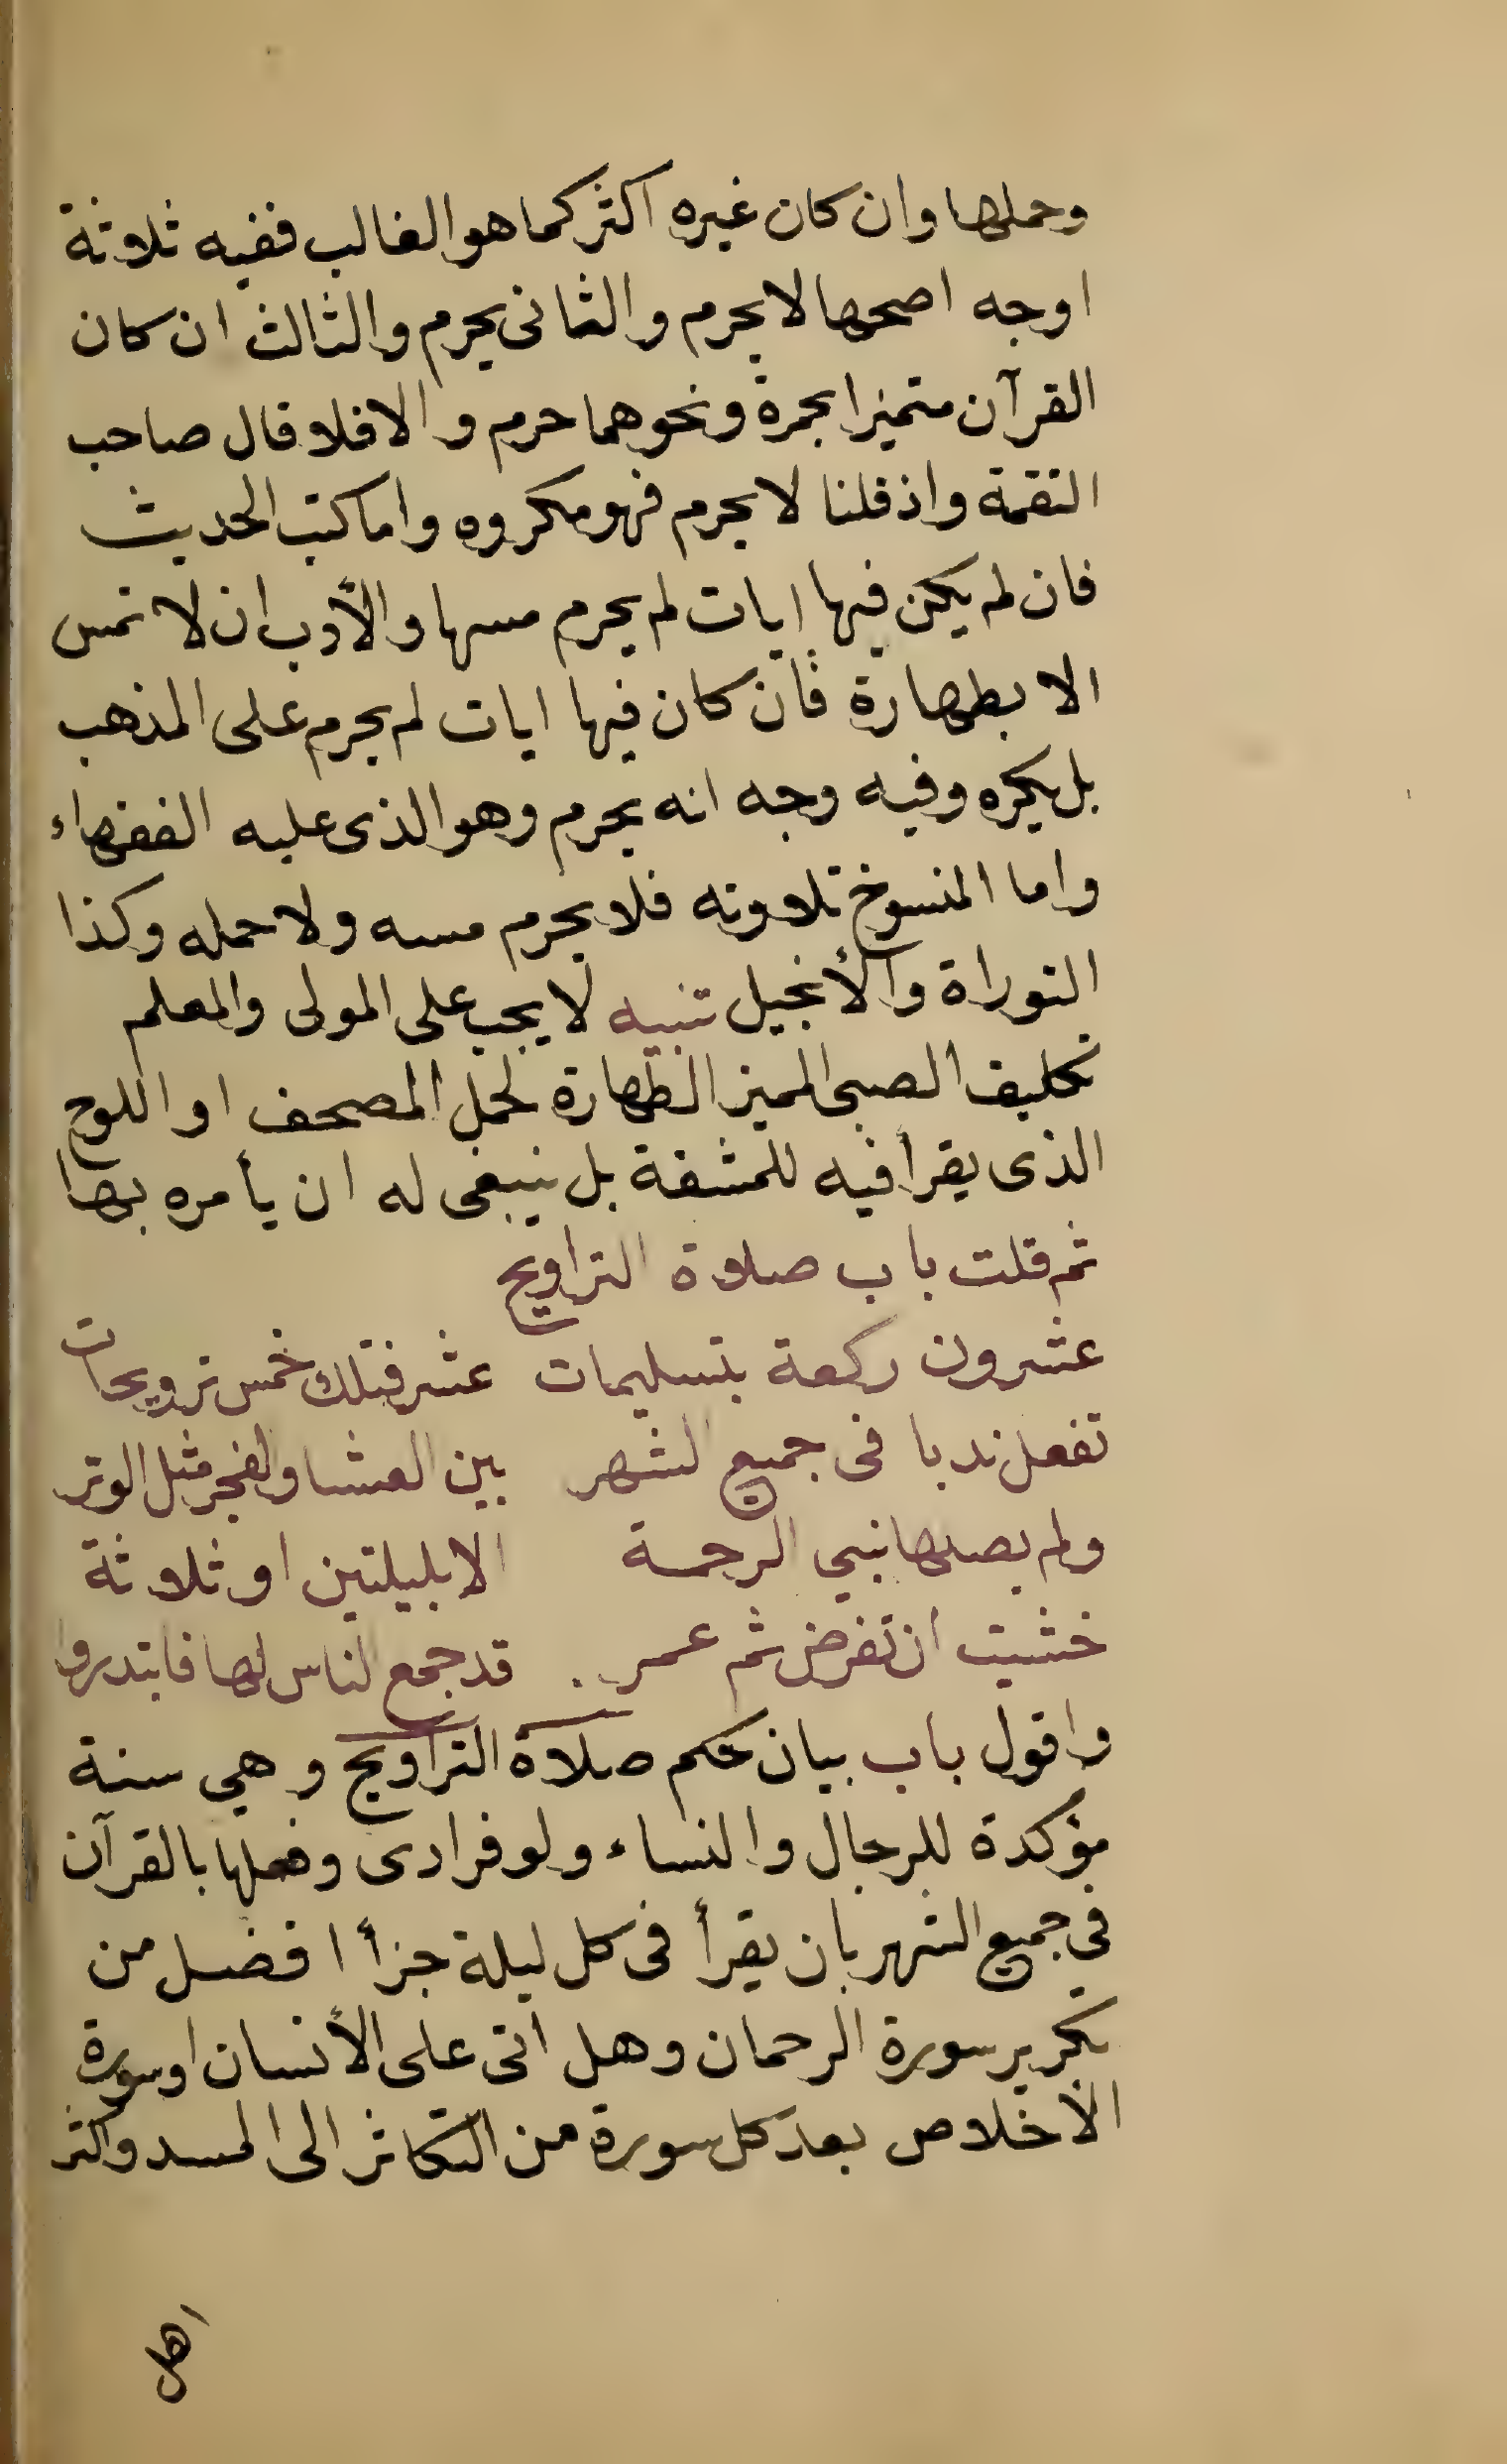 وحملها وان كان غيره اكثر كما هو الغالب ففيه ثلاثة
اوجه اصحها لا يحرم والثانى يحرم والثالث ان كان
القرآن متميزا بحمرة ونحوهما حرم والا فلا قال صاحب
التقمة واذ قلنا لا يحرم فهو مكروه واما كتب الحديث
فان لم يكن فيها ايات لم يحرم مسها والأدب ان لا تمس
الا بطهارة فان كان فيها ايات لم يحرم على المذهب
بل يكره وفيه وجه انه يحرم وهو الذى عليه الفقهاء
واما المنسوخ تلاوته فلا يحرم مسه ولا حمله وكذا
التوراة والأنجيل تنبيه لا يجب على المولى والمعلم
تكليف الصبى المميز الطهارة لحمل المصحف او اللوح
الذى يقرأ فيه للمشقة بل ينبغى له ان يأمره بها
ثم قلت باب صلاة التراويح
عشرون ركعة بتسليمات عشر فتلك خمس ترويحات
تفعل ندبا فى جميع الشهر بين العشا والفجر مثل الوتر
ولم يصلها نبي الرحمة الا بليلتين او ثلاثة
خشيت ان تفرض ثم عمر قد جمع الناس لها فابتدروا
واقول باب بيان حكم صلاة التراويح وهي سنة
مؤكدة للرجال والنساء ولو فرادى وفعلها بالقرآن
في جميع الشهر بان يقرأ فى كل ليلة جزأ افضل من
تكرير سورة الرحمان وهل اتى على الأنسان او سورة
الأخلاص بعد كل سورة من التكاثر الى المسد واكثر
اهل